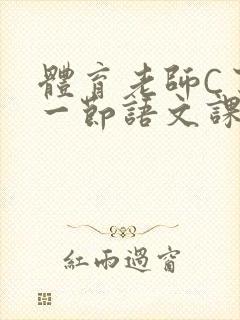 體育老師C了
一節語文課
紅雨過窗